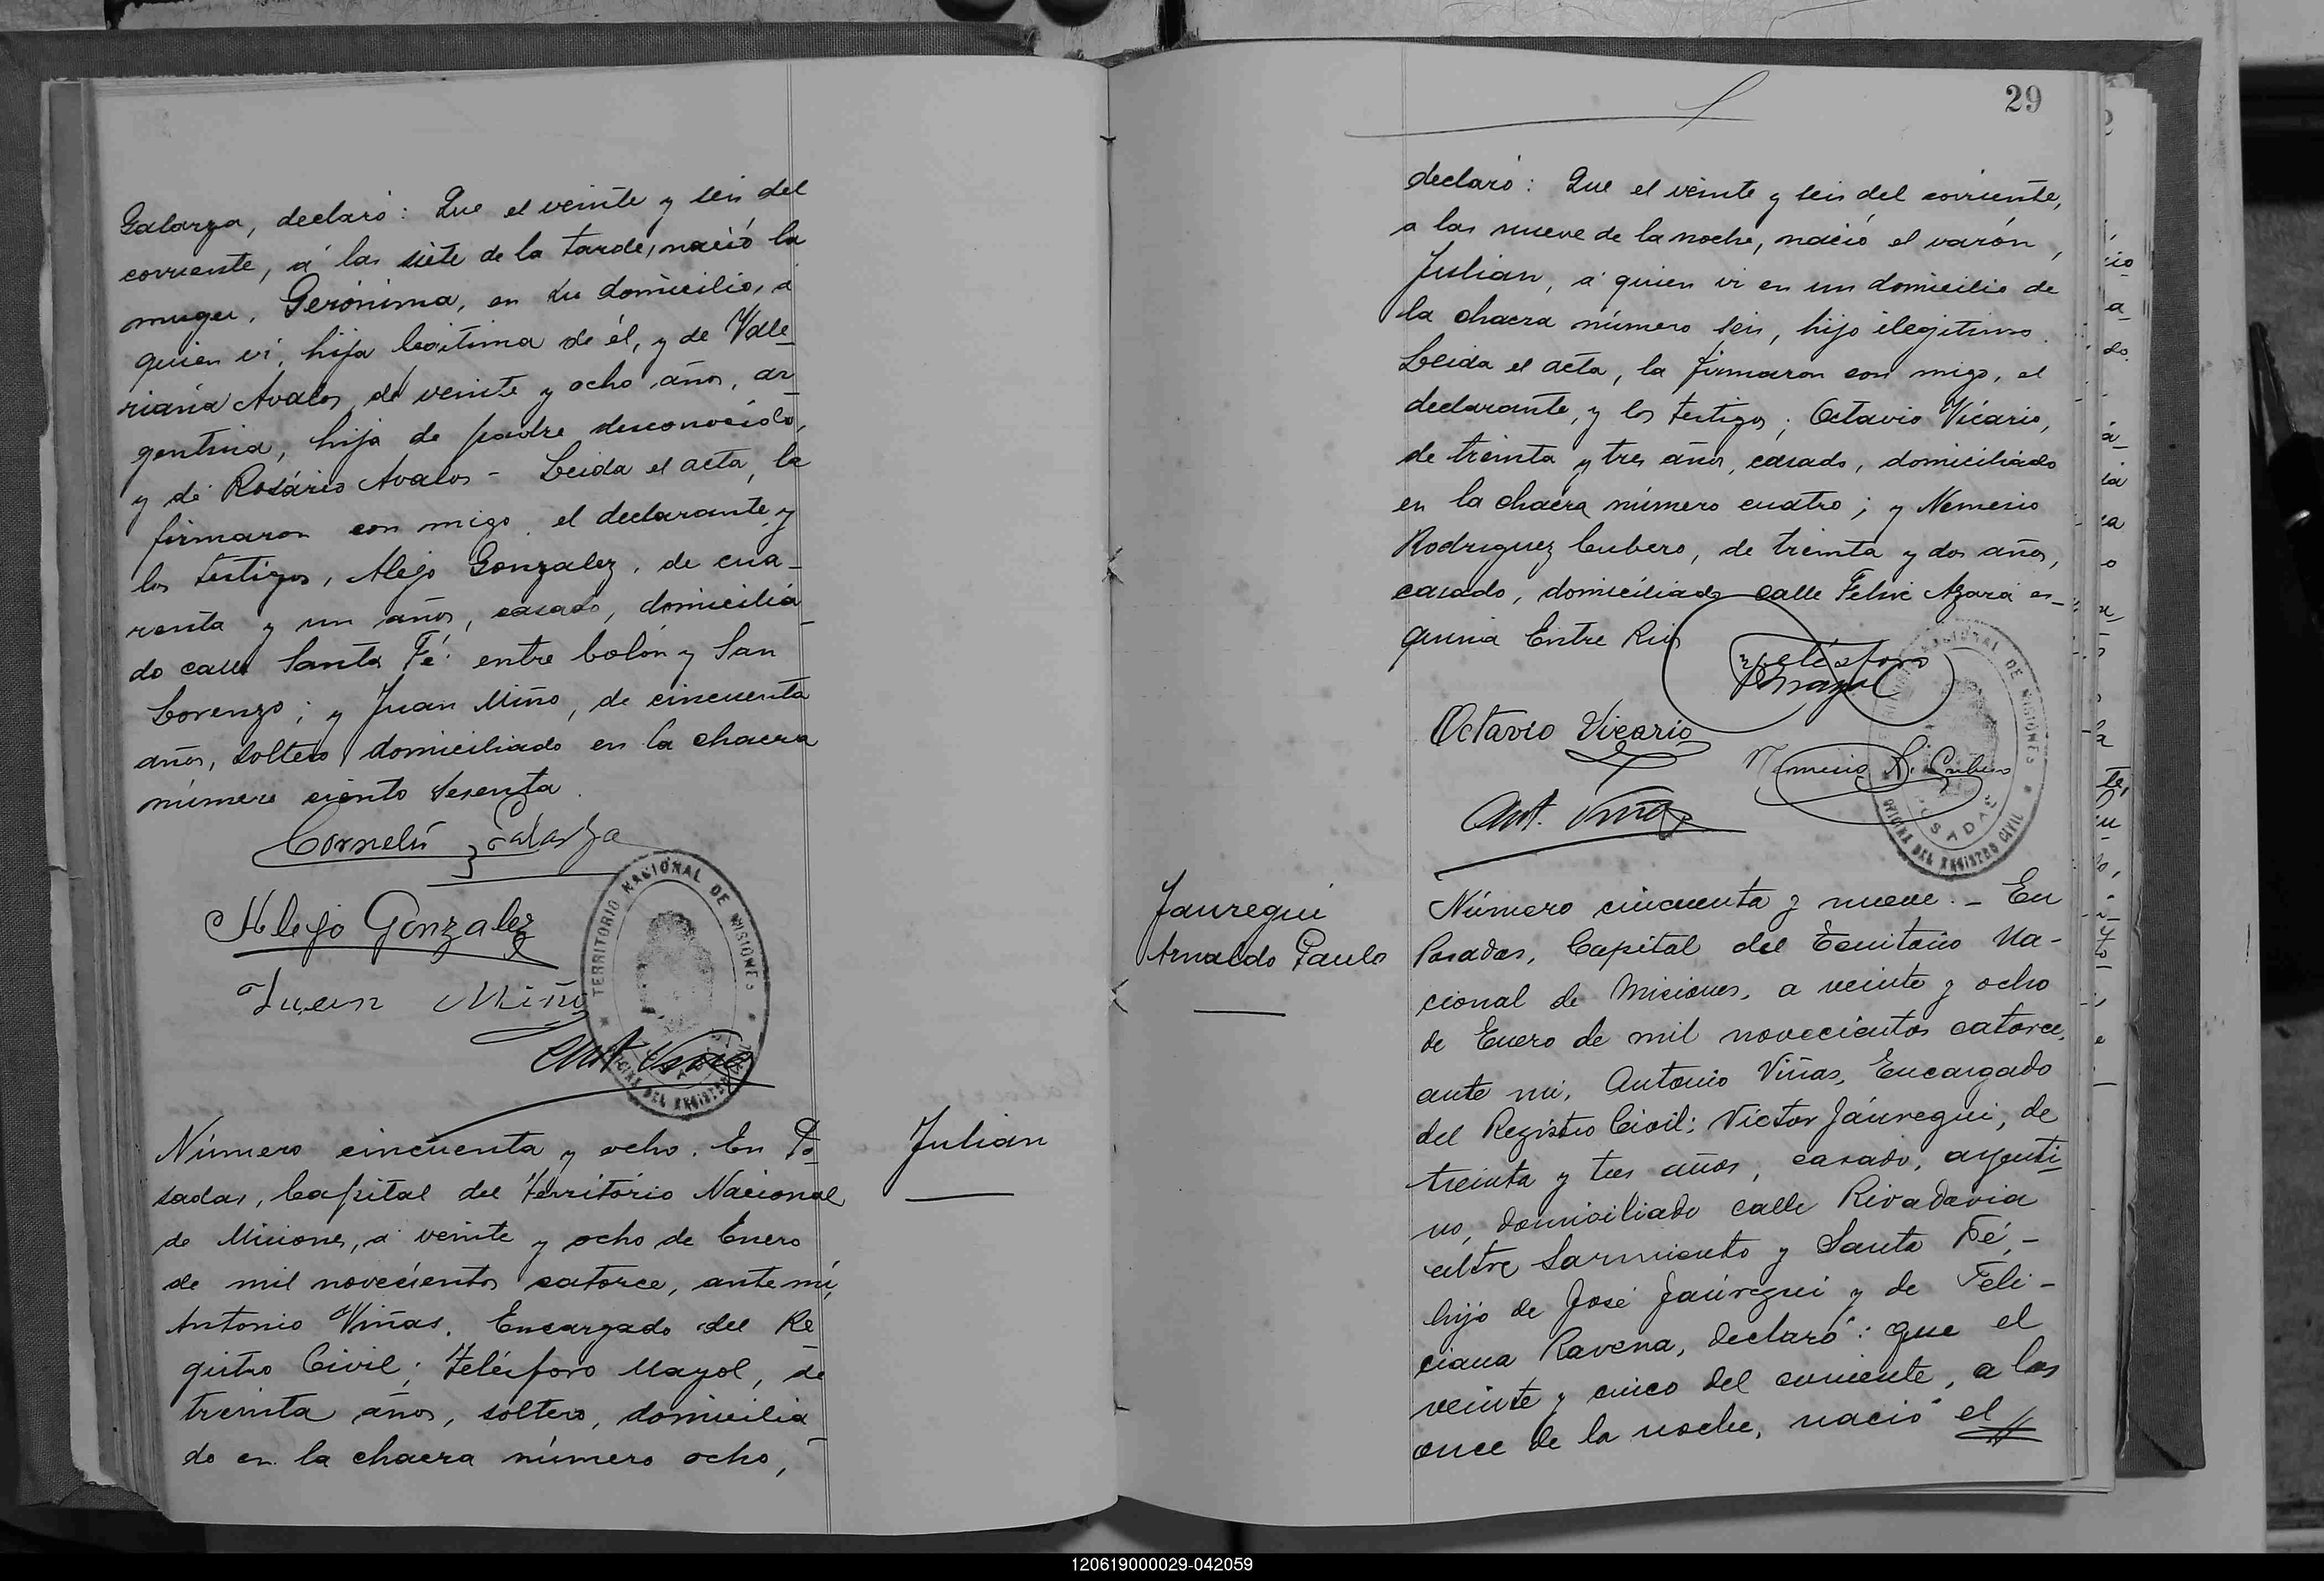 Galarza, declaró: Que el veinte y seis del
corriente, á las siete de la tarde, nació la
muger, Gerónima, en su domicilio, á
quien vi, hija legitima de él, y de Vale_
riana Avalos, de veinte y ocho años, ar_
gentina, hija de padre desconocido,
y de Rosário Avalos - Leida el acta, la
firmaron con migo, el declarante, y
los testigos, Alejo Gonzalez, de cua_
renta y un años, casado, domicilia_
do calle Santa Fé entre Colón y San
Lorenzo; y Juan Miño, de cincuenta
años, soltero, domiciliado en la chacra
número ciento sesenta.
Cornelio Galarza
Alejo Gonzalez
Juan Miño
TERRITORIO NACIONAL DE MISIONES
OFICINA DEL REGISTRO CIVIL
Ant. Viñas
Número cincuenta y ocho. En Po_
sadas, Capital del Territorio Nacional
de Misiones, á veinte y ocho de Enero
de mil novecientos catorce, ante mi,
Antonio Viñas, Encargado del Re_
gistro Civil; Telésforo Mayol, de
treinta años, soltero, domicilia_
do en la chacra número ocho,
Julian
29
declaró: Que el veinte y seis del corriente,
a las nueve de la noche, nació el varón,
Julian, á quien vi en un domicilio de
la chacra número seis, hijo ilegitimo.
Leida el acta, la firmaron con migo, el
declarante, y los testigos; Octavio Vicario,
de treinta y tres años, casado, domiciliado
en la chacra número cuatro; y Nemesio
Rodriguez Cubero, de treinta y dos años,
casado, domiciliado calle Felix Azara es_
quina Entre Rios
Telésforo
Mayol
Octavio Vicario
Nemesio R. Cubero
Ant. Viñas
NACIONAL DE MISIONES
POSADAS
OFICINA DEL REGISTRO CIVIL
Jauregui
Arnaldo Paulo
Número cincuenta y nueve. - En
Posadas, Capital del Territorio Na-
cional de Misiones, a veinte y ocho
de Enero de mil novecientos catorce,
ante mi, Antonio Viñas, Encargado
del Registro Civil; Victor Jáuregui, de
treinta y tres años, casado, argenti_
no, domiciliado calle Rivadavia
entre Sarmiento y Santa Fé, -
hijo de José Jáuregui y de Feli-
ciana Ravena, declaró: que el
veinte y cinco del corriente, a las
once de la noche, nació el
120619000029-042059